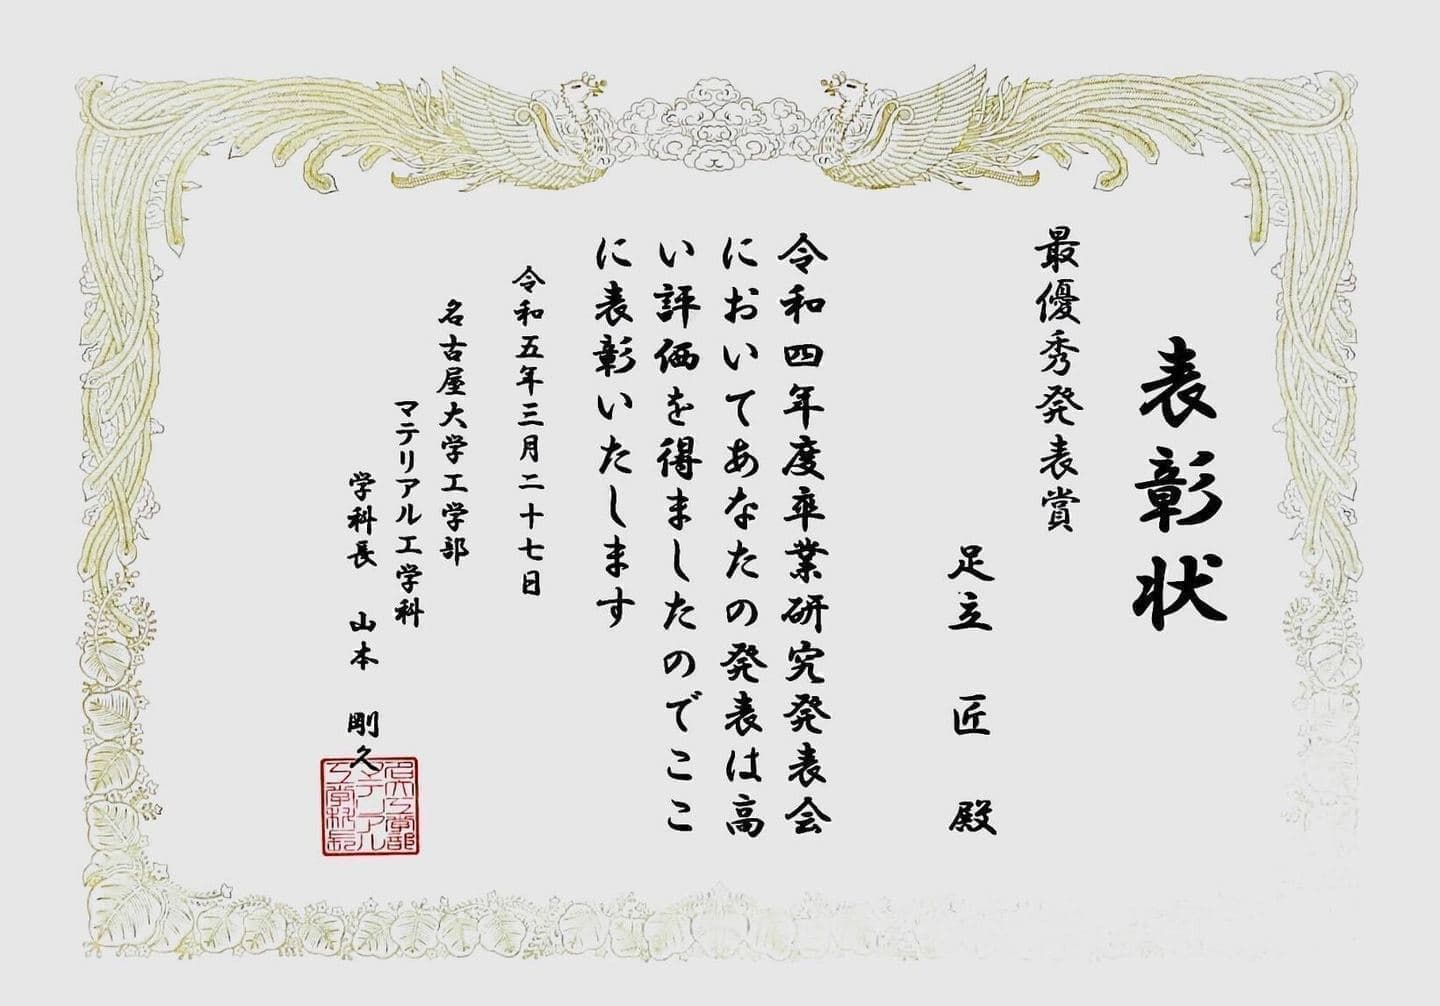 表彰状
最優秀発表賞
足立 匠 殿
令和四年度卒業研究発表会
においてあなたの発表は高
い評価を得ましたのでここ
に表彰いたします
令和五年三月二十七日
名古屋大学工学部
マテリアル工学科
学科長 山本 剛久